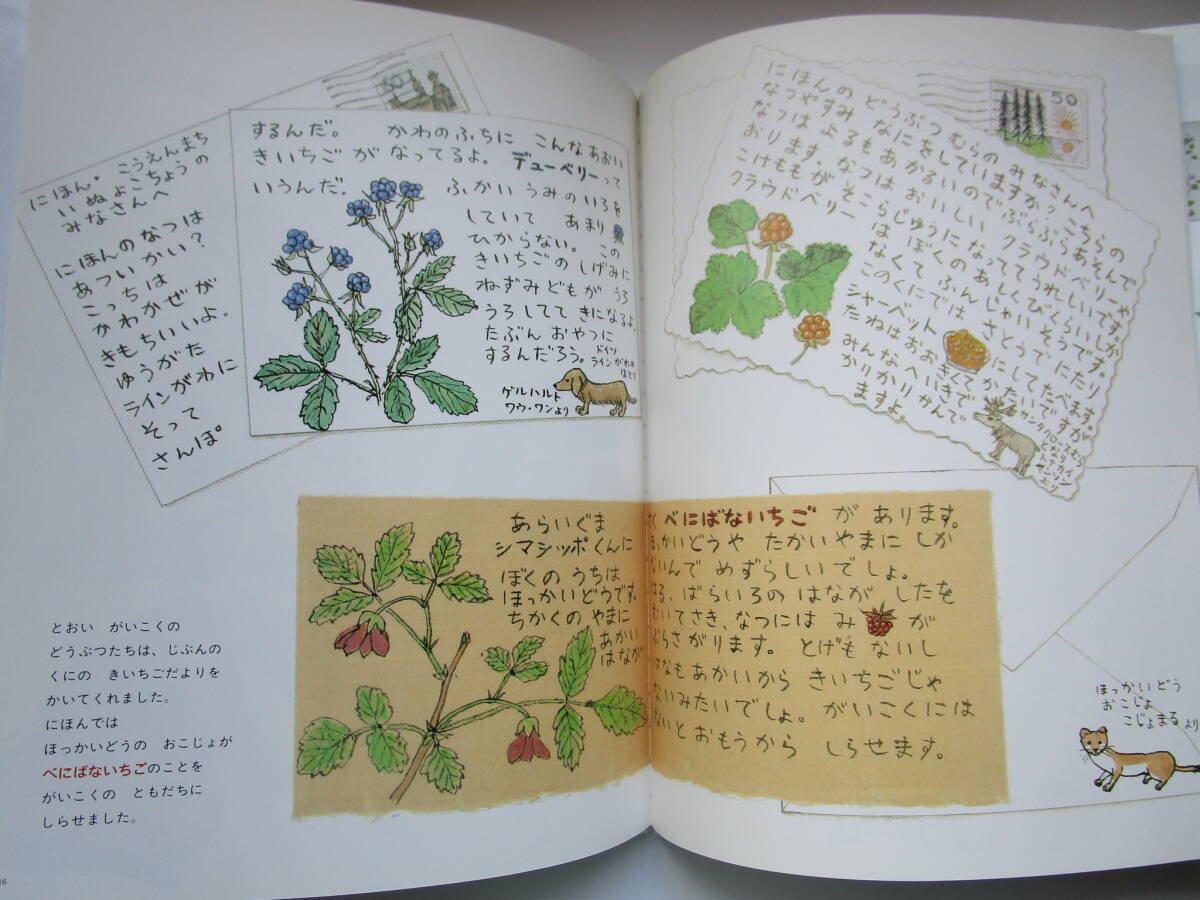 にほん。こうえんまち
いぬよこちょうの
みなさんへ
にほんのなつは
あついかい？
こっちは
かわかぜが
きもちいいよ。
ゆうがた
ラインがわに
そって
さんぽ
するんだ。 かわのふちに こんなあおい
きいちご が なってるよ。 デューベリーって
いうんだ。 ふかい うみのいろを
していて あまり
ひからない。 この
きいちごの しげみに
ねずみどもが うろ
うろしてて きになるよ。
たぶん おやつに
するんだろう。
ドイツ
ラインがわの
ほとり
ゲルハルト
ワウ・ワンより
50
にほんの どうぶつむらの みなさんへ
なつやすみ なにをしていますか？ こちらの
なつは よるもあかるいのでぶらぶらあそんで
おります。なつは おいしい クラウドベリーや
こけももが そこらじゅうになっててうれしいです。
クラウドベリー は ぼくのあしくびくらいしか
なくて ふんじゃいそうです。
このくにでは さとうでにたり
シャーベット にしてたべます。
たねはおおきくてかたいですが
みんなへいきで
かりかりかんで
ますよ。
サンタクロースむら
となりの
トナカイ
より
あらいぐま
シマシッポくんに
ぼくの うちは
ほっかいどうです。
ちかくの やまに
あかい
はなが
さく べにばないちご が あります。
ほっかいどうや たかいやまに しか
ないんで めずらしいでしょ。
はる、ばらいろの はなが したを
むいてさき、なつには み が
ぶらさがります。 とげも ないし
はなもあかいから きいちごじゃ
ないみたいでしょ。がいこくには
ないとおもうから しらせます。
ほっかいどう
おこじょ
こじょまる より
とおい がいこくの
どうぶつたちは、じぶんの
くにの きいちごだよりを
かいてくれました。
にほんでは
ほっかいどうの おこじょが
べにばないちごのことを
がいこくの ともだちに
しらせました。
16